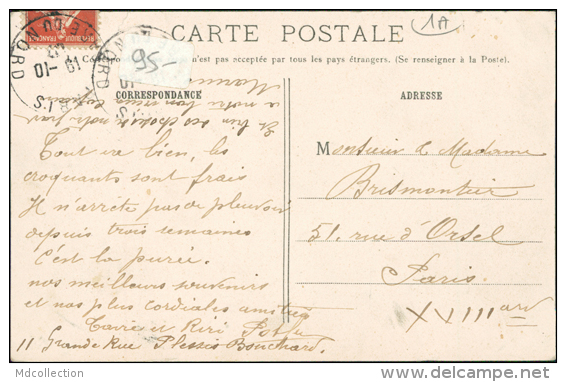 CARTE POSTALE
1A
95-
n'est pas acceptée par tous les pays étrangers. (Se renseigner à la Poste).
CORRESPONDANCE
ADRESSE
Tout va bien, les
croquants sont frais
Il n'arrête pas de pleuvoir
depuis trois semaines
C'est la purée.
nos meilleurs souvenirs
et nos plus cordiales amitiés
11 Grande Rue Plessis Bouchard.
Monsieur & Madame
Brismontier
51, rue d'Orsel
Paris.
XVIII arr
MDcollection
delcampe.net